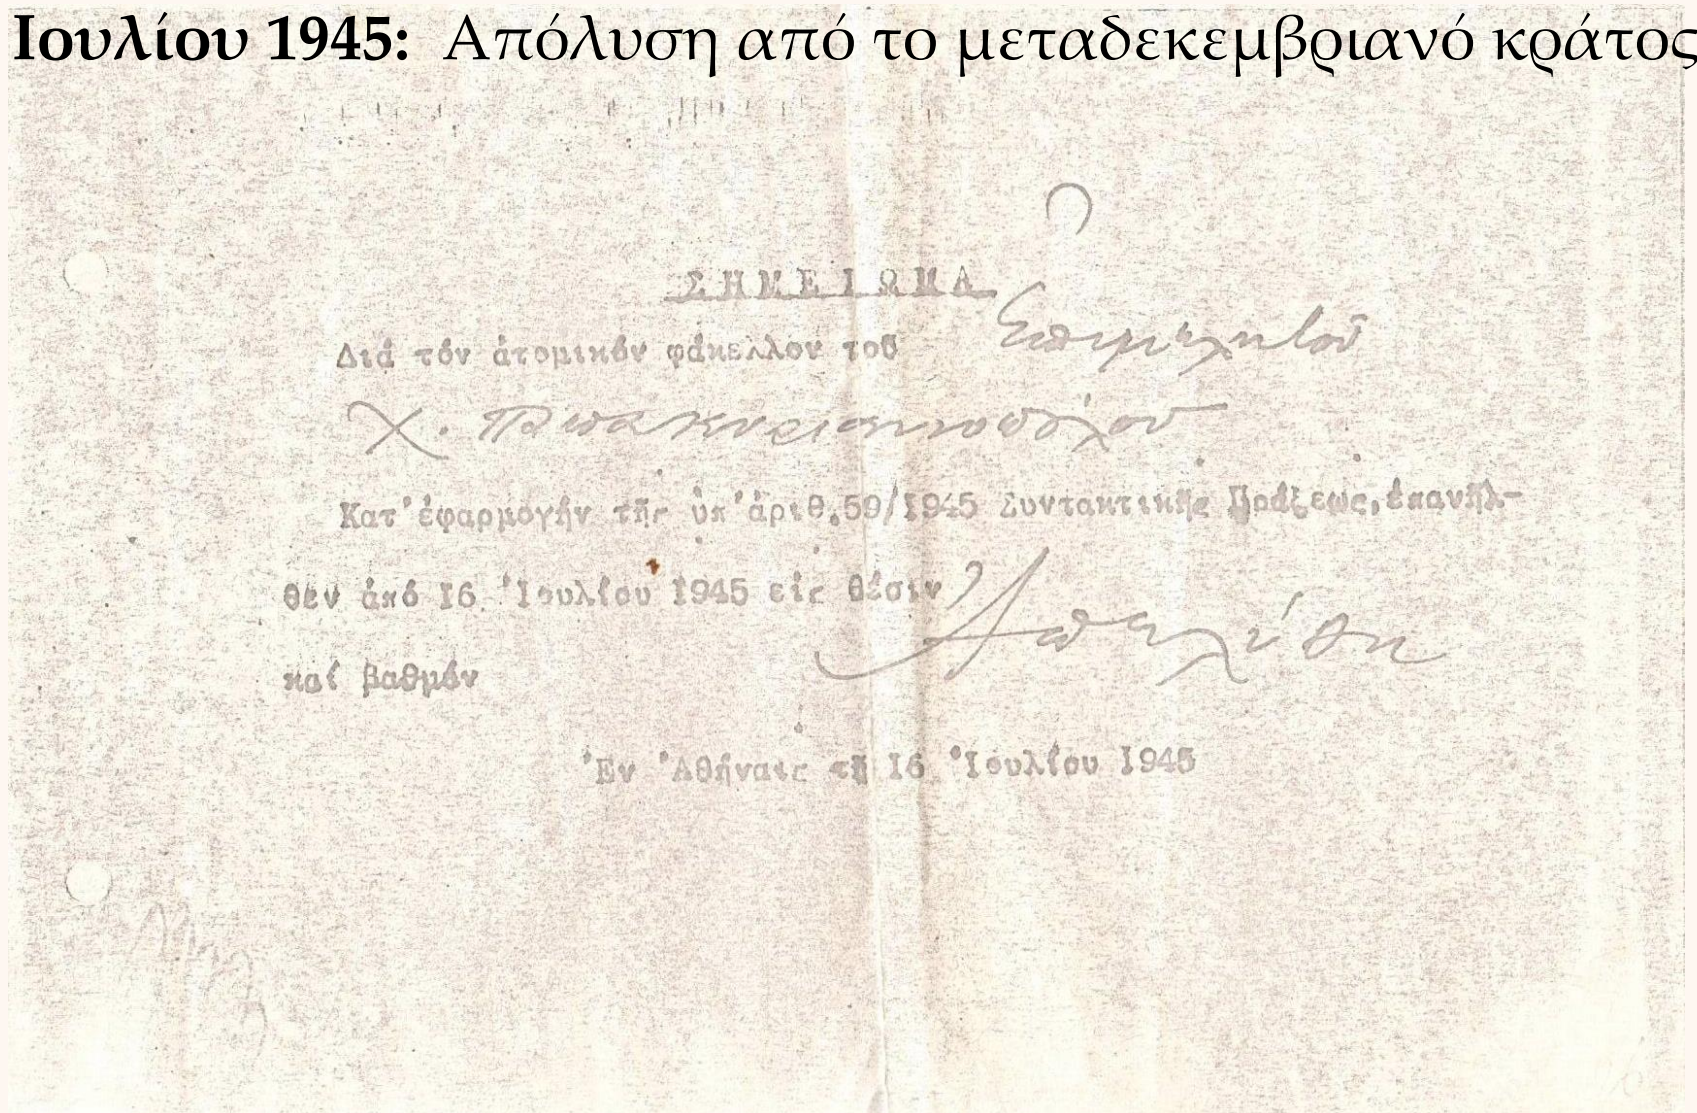 Ιουλίου 1945: Απόλυση από το μεταδεκεμβριανό κράτος
ΣΗΜΕΙΩΜΑ
Διά τόν ἀτομικόν φάκελλον τοῦ Ἐπιμελητοῦ
Χ. Παπακυριακοπούλου
Κατ' ἐφαρμογήν τῆς ὑπ' ἀριθ.59/1945 Συντακτικῆς Πράξεως, ἐπανῆλ-
θεν ἀπό 16 Ἰουλίου 1945 εἰς θέσιν Ἀπελύθη
καί βαθμόν
Ἐν Ἀθήναις τῇ 16 Ἰουλίου 1945